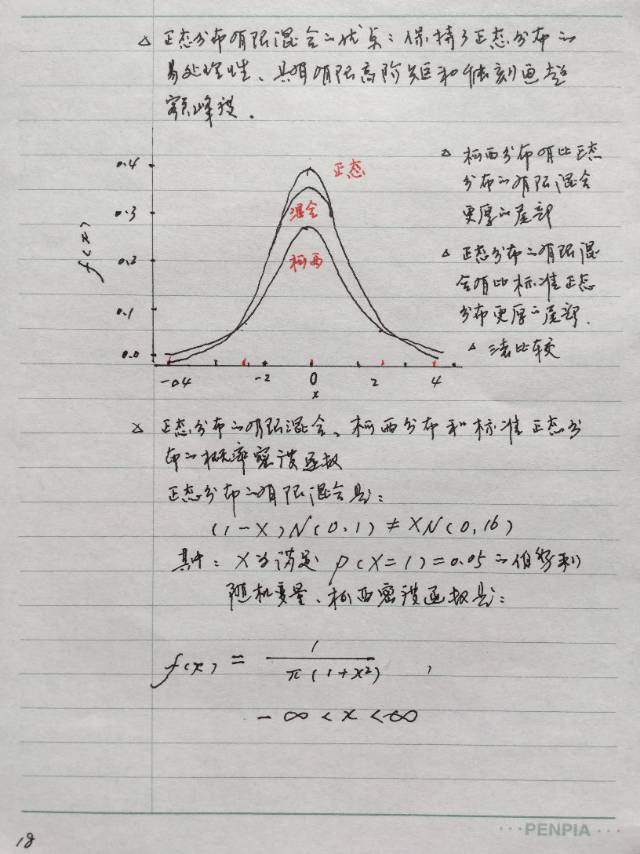 △ 正态分布有限混合的优点：保持了正态分布的
易处理性、具有有限高阶矩和能刻画超
额峰度.
f(x)
0.4
0.3
0.2
0.1
0.0
正态
混合
柯西
-04
-2
0
2
4
x
△ 柯西分布有比正态
分布的有限混合
更厚的尾部
△ 正态分布的有限混
合有比标准正态
分布更厚的尾部.
△ 三者比较
△ 正态分布的有限混合、柯西分布和标准正态分
布的概率密度函数
正态分布的有限混合是：
(1-X)N(0,1) ≠ XN(0,16)
其中：X为满足 P(X=1)=0.05的伯努利
随机变量、柯西密度函数是：
f(x) = 1/π(1+x²) ,
-∞<x<+∞
18
···PENPIA···